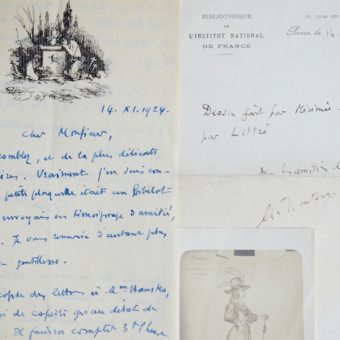 14. XI. 1924.
Cher Monsieur,
comblez, et de la plus délicate
Vraiment j'en suis con-
petite plaquette était un Bibelot
envoyais en témoignage d'amitié,
Je vous remercie d'autant plus
gentillesse.
copie des lettres à Mme Hanska,
de copiste qu au début de
Il faudra compter
BIBLIOTHÈQUE
DE
L'INSTITUT NATIONAL
DE FRANCE
QUAI DE
Paris, le 14
Dessin fait par Mérimée
par Littré